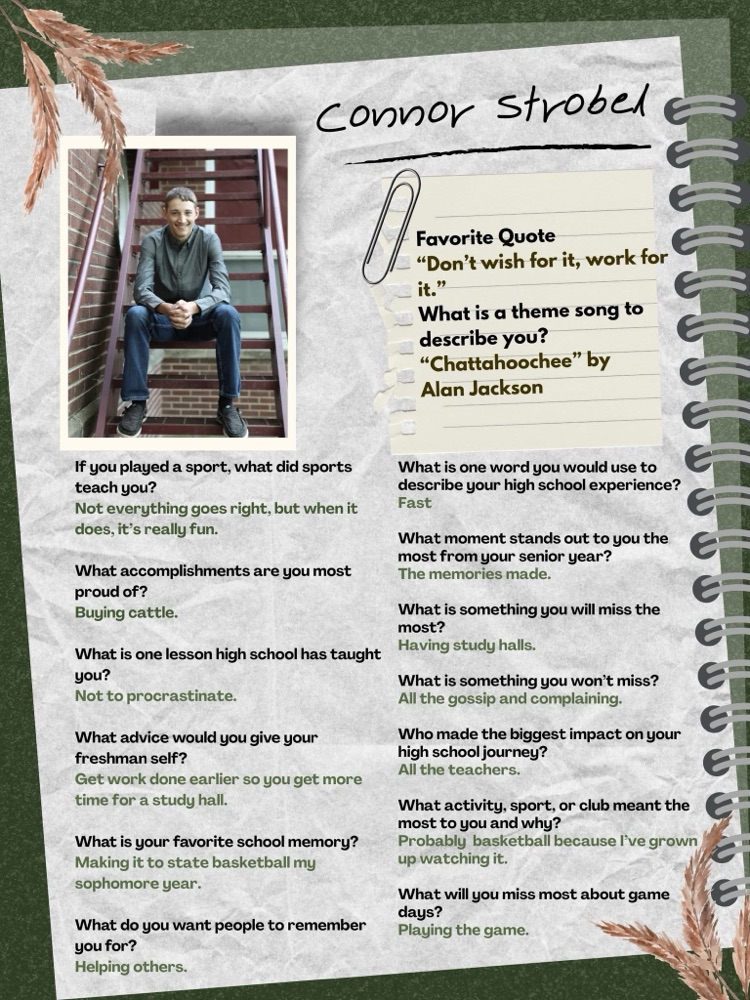 Connor Strobel
Favorite Quote
“Don’t wish for it, work for
it.”
What is a theme song to
describe you?
“Chattahoochee” by
Alan Jackson
If you played a sport, what did sports
teach you?
Not everything goes right, but when it
does, it’s really fun.
What accomplishments are you most
proud of?
Buying cattle.
What is one lesson high school has taught
you?
Not to procrastinate.
What advice would you give your
freshman self?
Get work done earlier so you get more
time for a study hall.
What is your favorite school memory?
Making it to state basketball my
sophomore year.
What do you want people to remember
you for?
Helping others.
What is one word you would use to
describe your high school experience?
Fast
What moment stands out to you the
most from your senior year?
The memories made.
What is something you will miss the
most?
Having study halls.
What is something you won’t miss?
All the gossip and complaining.
Who made the biggest impact on your
high school journey?
All the teachers.
What activity, sport, or club meant the
most to you and why?
Probably  basketball because I’ve grown
up watching it.
What will you miss most about game
days?
Playing the game.